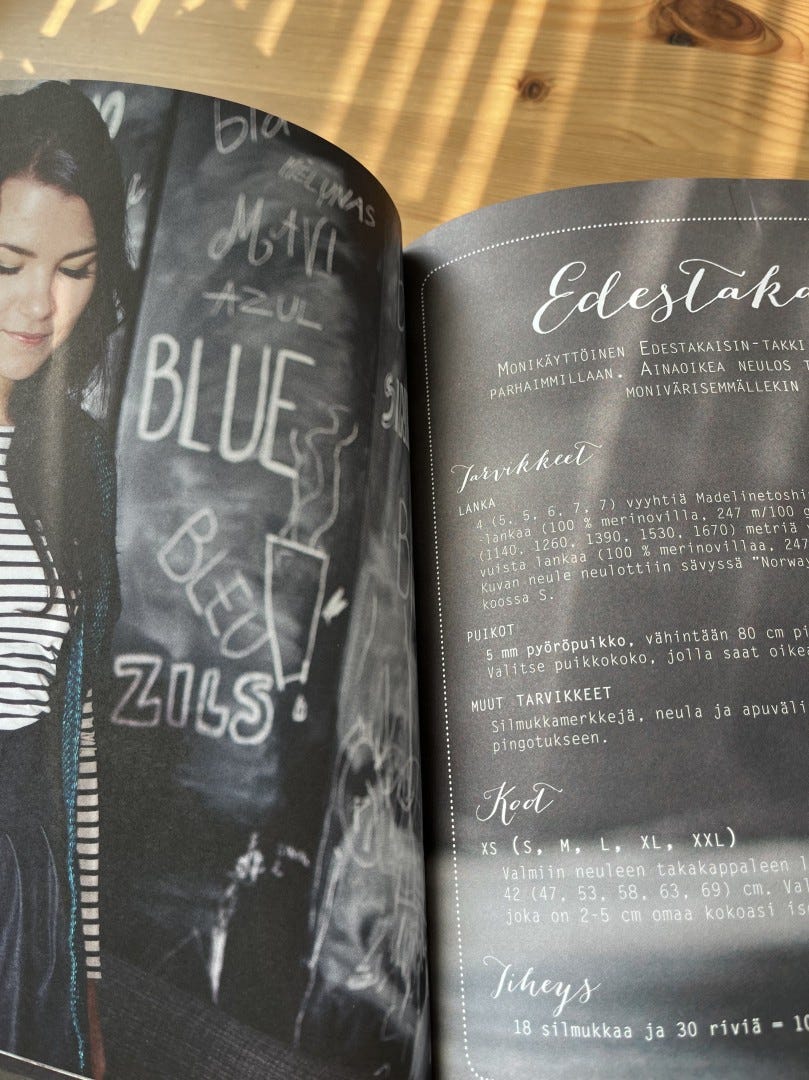 bla
MĖLYNAS
MAVI
AZUL
BLUE
BLEU
ZILS
Edestaka
MONIKÄYTTÖINEN EDESTAKAISIN-TAKKI
PARHAIMMILLAAN. AINAOIKEA NEULOS
MONIVÄRISEMMÄLLEKIN
Tarvikkeet
LANKA
4 (5, 5, 6, 7, 7) vyyhtiä Madelinetoshi
-lankaa (100 % merinovilla, 247 m/100 g
(1140, 1260, 1390, 1530, 1670) metriä
vuista lankaa (100 % merinovillaa, 247
Kuvan neule neulottiin sävyssä "Norway
koossa S.
PUIKOT
5 mm pyöröpuikko, vähintään 80 cm pi
Valitse puikkokoko, jolla saat oikea
MUUT TARVIKKEET
Silmukkamerkkejä, neula ja apuväli
pingotukseen.
Koot
XS (S, M, L, XL, XXL)
Valmiin neuleen takakappaleen
42 (47, 53, 58, 63, 69) cm. Val
joka on 2-5 cm omaa kokoasi iso
Tiheys
18 silmukkaa ja 30 riviä = 10